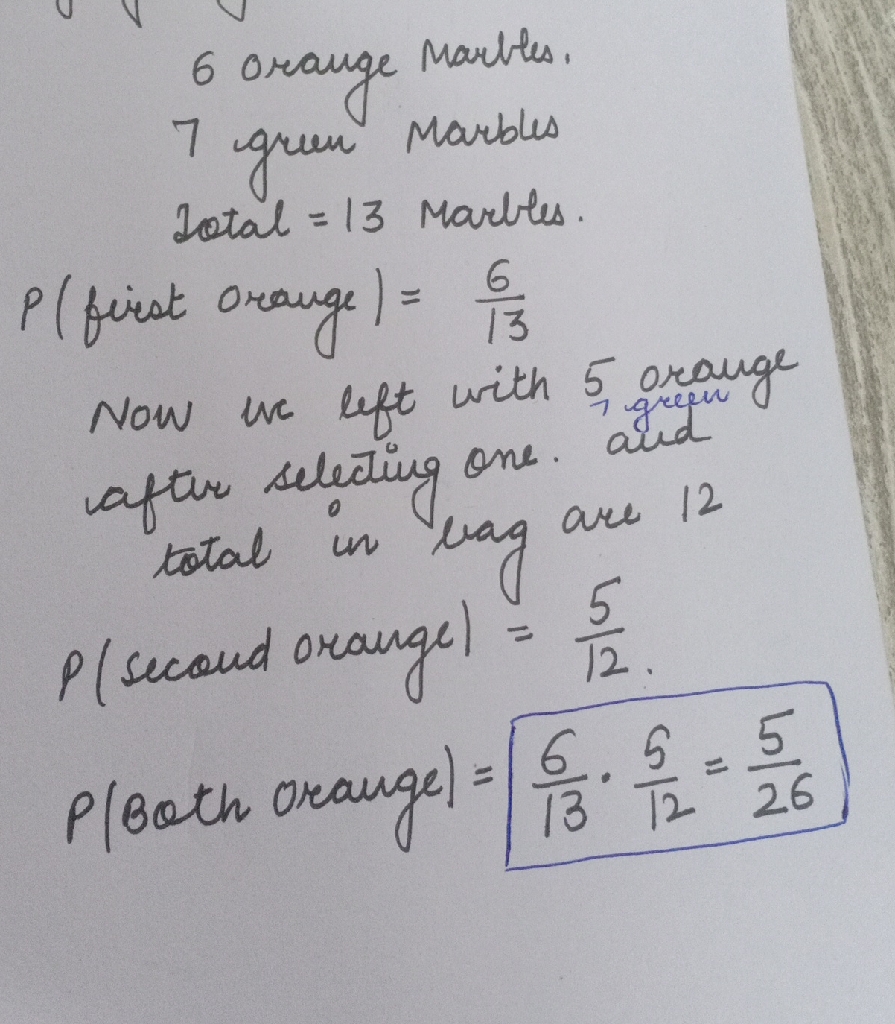 6 orange Marbles.
7 green Marbles
Total = 13 Marbles.
P(first orange) = 6/13
Now we left with 5 orange
7 green
after selecting one. and
total in bag are 12
P(second orange) = 5/12.
P(Both orange) = 6/13 · 5/12 = 5/26